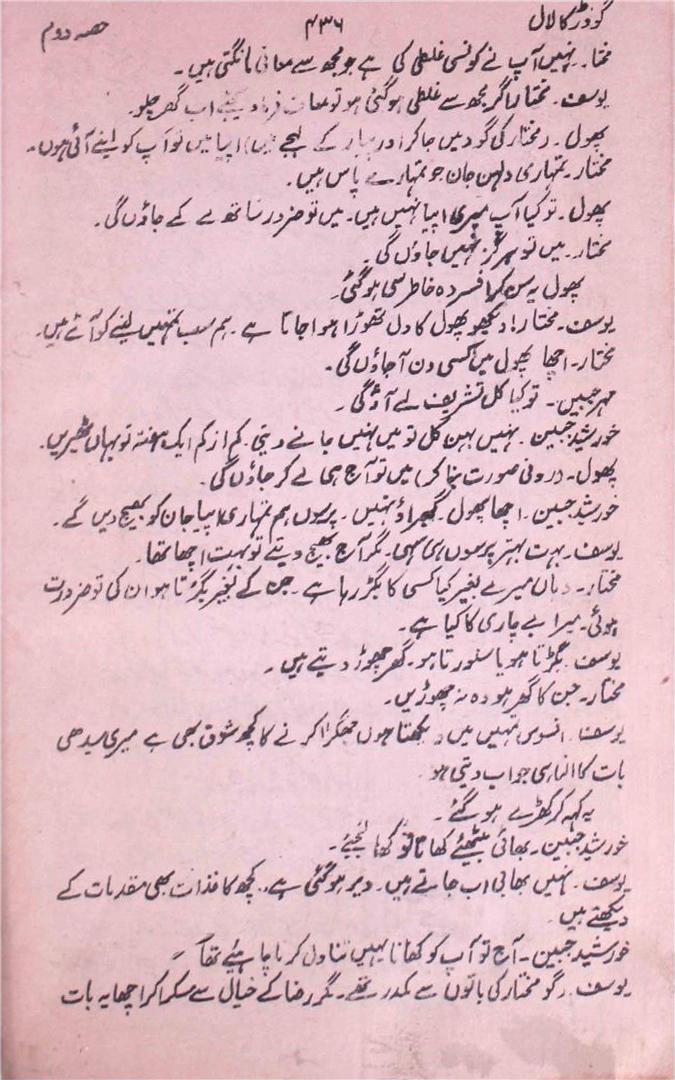 گودڑ کا لال ۴۳۶ حصہ دوم
مختار۔ نہیں آپ نے کونسی غلطی کی ہے جو مجھ سے معافی مانگتی ہیں۔
یوسف۔ مختار اگر مجھ سے غلطی ہو گئی ہو تو معاف فرما دیجئے اب گھر چلو۔
پھول۔ (مختار کی گود میں جا کر اور پیار کے لہجے میں) اپیا میں تو آپ کو لینے آئی ہوں۔
مختار۔ تمہاری دلہن جان جو تمہارے پاس ہیں۔
پھول۔ تو کیا آپ میری اپیا نہیں ہیں۔ میں تو ضرور ساتھ لے کے جاؤں گی۔
مختار۔ میں تو ہرگز نہیں جاؤں گی۔
پھول یہ سن کر افسردہ خاطر سی ہو گئی۔
یوسف۔ مختار! دیکھو پھول کا دل تھوڑا ہوا جاتا ہے۔ ہم سب تمہیں لینے کو آئے ہیں۔
مختار۔ اچھا پھول میں کسی دن آ جاؤں گی۔
مہر جبیں۔ تو کیا کل تشریف لے آؤ گی۔
خورشید جبین۔ نہیں بہن کل تو میں نہیں جانے دیتی۔ کم از کم ایک ہفتہ تو یہاں ٹھیریں۔
پھول۔ (رونی صورت بنا کر) میں تو آج ہی لے کر جاؤں گی۔
خورشید جبین۔ اچھا پھول۔ گھبراؤ نہیں۔ پرسوں ہم تمہاری اپیا جان کو بھیج دیں گے۔
یوسف۔ بہت بہتر پرسوں ہی سہی۔ مگر آج بھیج دیتے تو بہت اچھا تھا۔
مختار۔ وہاں میرے بغیر کیا کسی کا بگڑ رہا ہے۔ جن کے بغیر بگڑتا ہو ان کی تو ضرورت
ہوئی۔ میرا بے چاری کا کیا ہے۔
یوسف۔ بگڑتا ہو یا سنورتا ہو۔ گھر چھوڑ دیتے ہیں۔
مختار۔ جن کا گھر ہو وہ نہ چھوڑیں۔
یوسف۔ افسوس تمہیں میں دیکھتا ہوں جھگڑا کرنے کا کچھ شوق بھی ہے میری سیدھی
بات کا الٹا ہی جواب دیتی ہو۔
یہ کہہ کر کھڑے ہو گئے۔
خورشید جبین۔ بھائی بیٹھئے کھانا تو کھا لیجئے۔
یوسف۔ نہیں بھابی اب جاتے ہیں۔ دیر ہو گئی ہے۔ کچھ کاغذات بھی مقدمات کے
دیکھنے ہیں۔
خورشید جبین۔ آج تو آپ کو کھانا یہیں تناول کرنا چاہئیے تھا۔
یوسف۔ (گو مختار کی باتوں سے مکدر تھے۔ مگر رضا کے خیال سے مسکرا کر) اچھا یہ بات